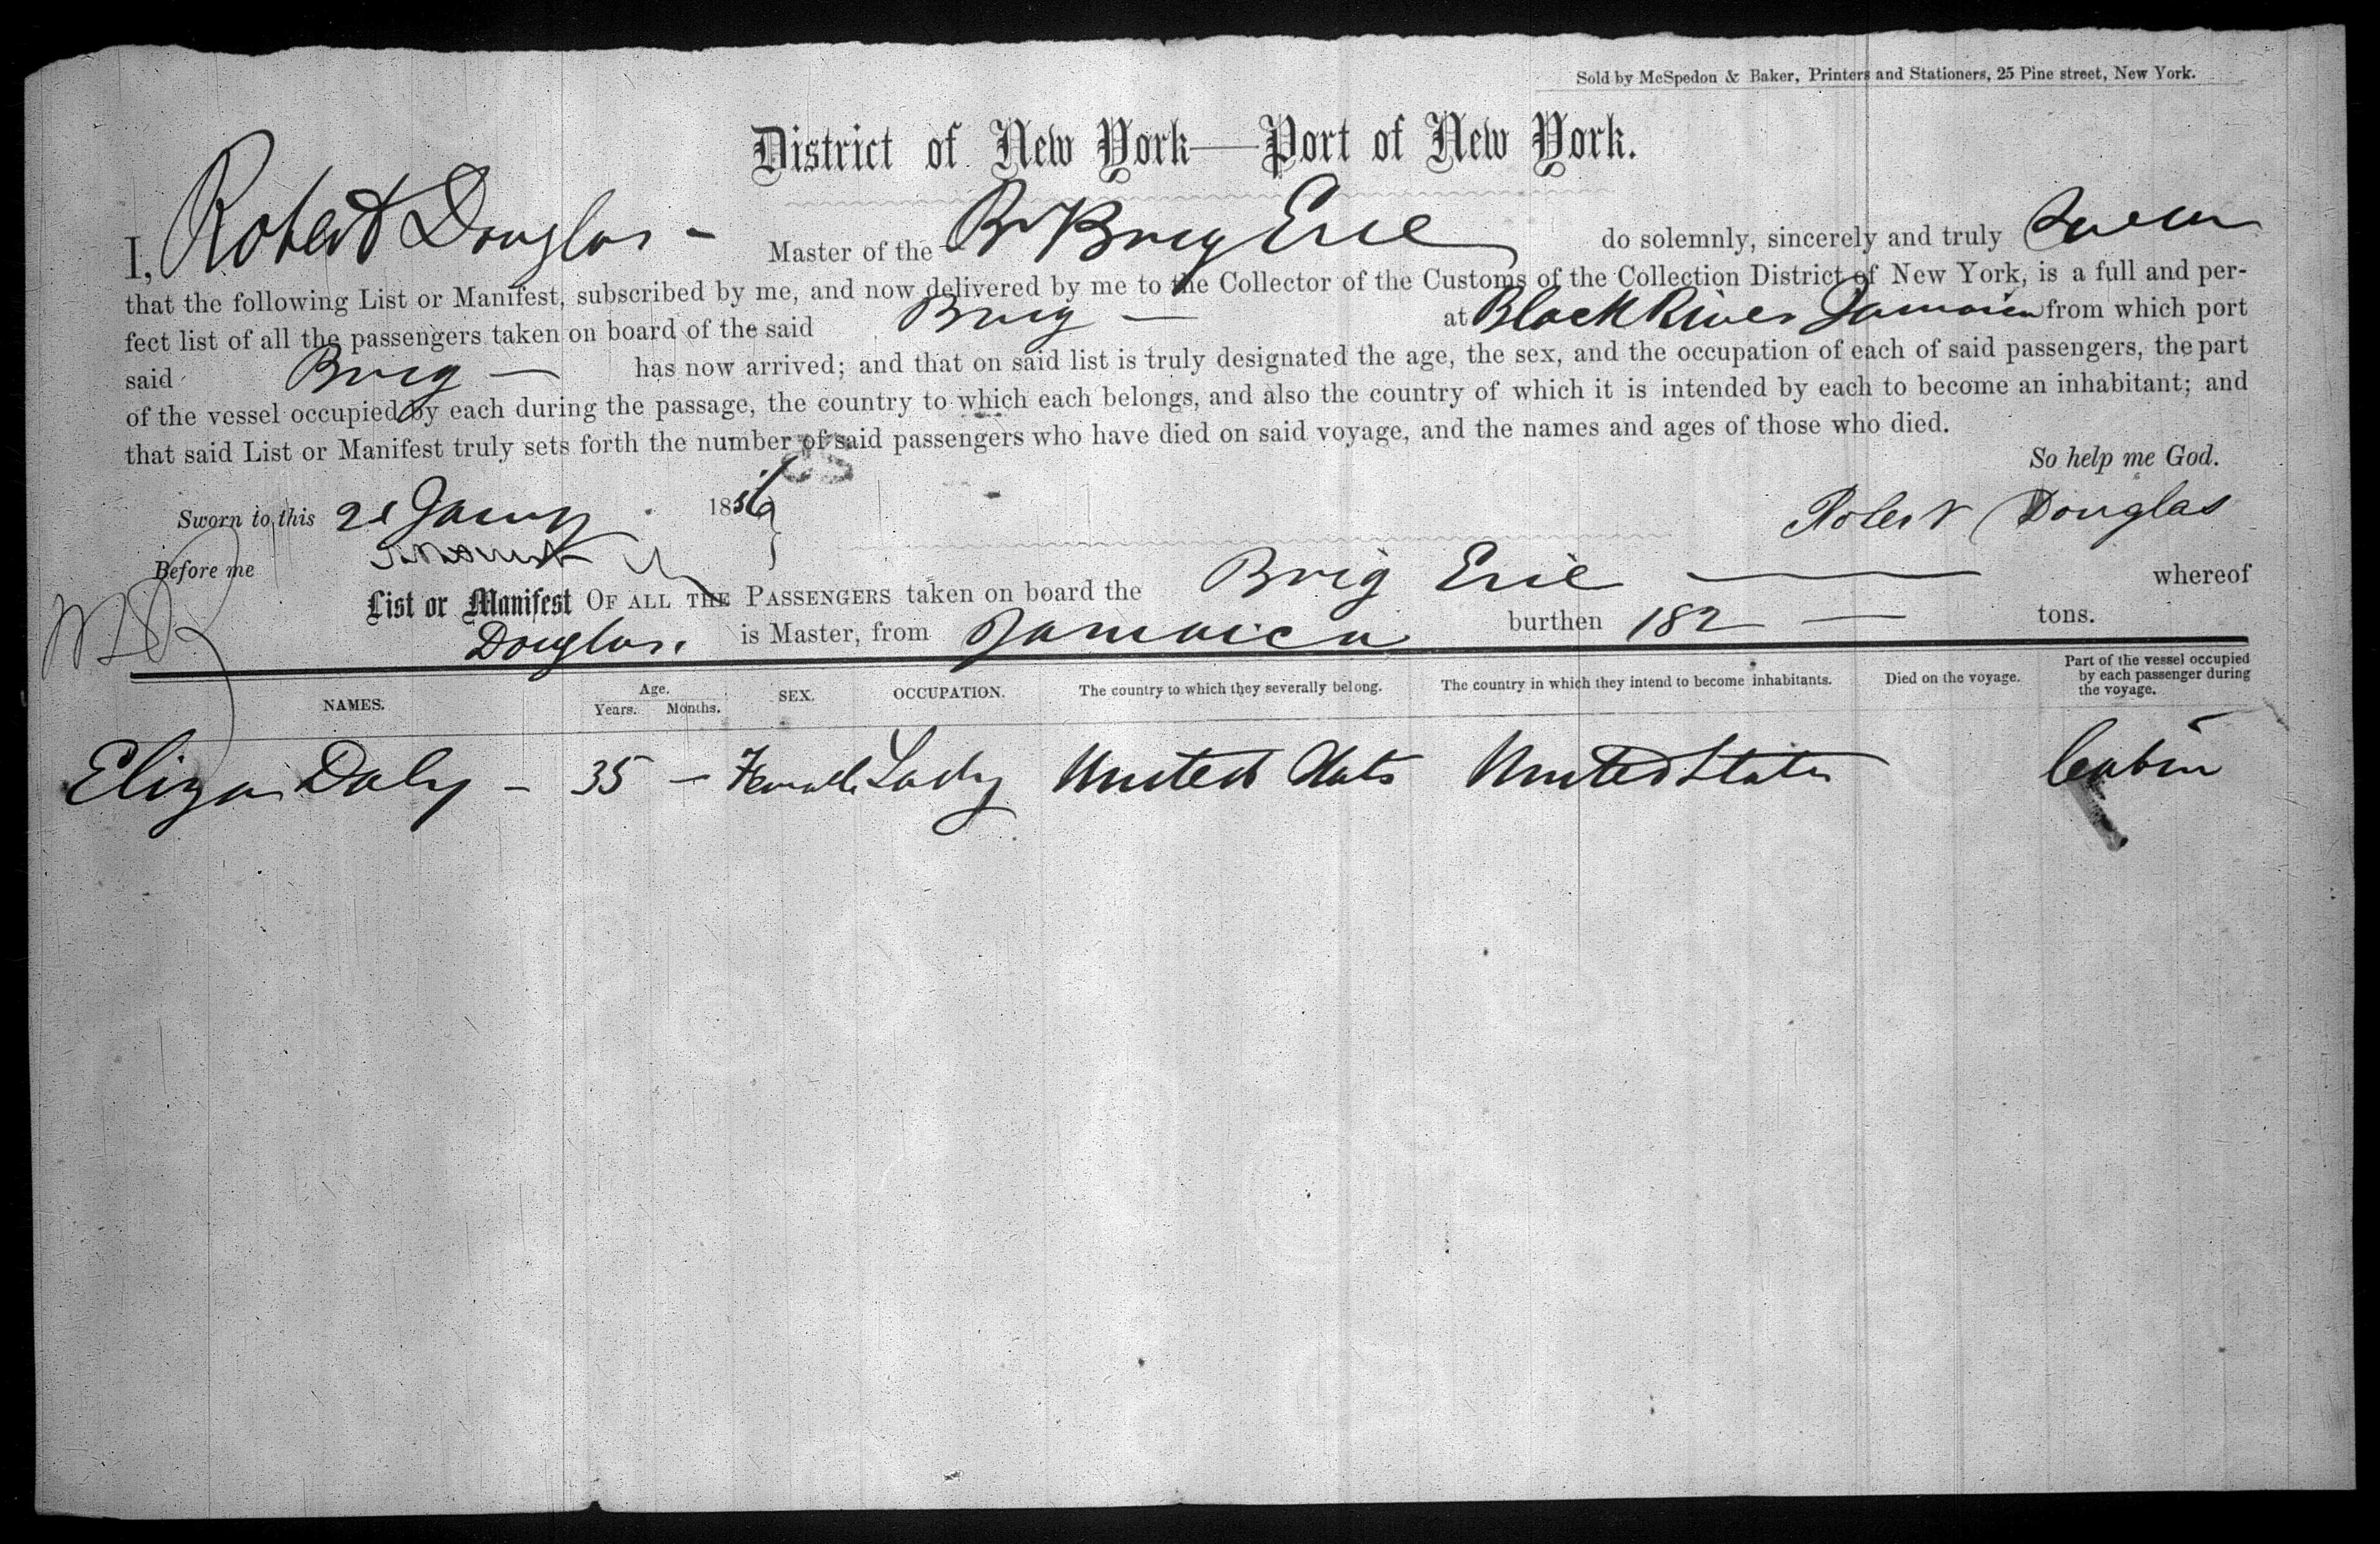 Sold by McSpedon & Baker, Printers and Stationers, 25 Pine street, New York.
District of New York—Port of New York.
I, Robert Douglas - Master of the Br Brig Erie do solemnly, sincerely and truly Swear
that the following List or Manifest, subscribed by me, and now delivered by me to the Collector of the Customs of the Collection District of New York, is a full and per-
fect list of all the passengers taken on board of the said Brig — at Black River Jamaica from which port
said Brig — has now arrived; and that on said list is truly designated the age, the sex, and the occupation of each of said passengers, the part
of the vessel occupied by each during the passage, the country to which each belongs, and also the country of which it is intended by each to become an inhabitant; and
that said List or Manifest truly sets forth the number of said passengers who have died on said voyage, and the names and ages of those who died.
So help me God.
Sworn to this 21 Jany 1856
Robert Douglas
Before me
List or Manifest OF ALL THE PASSENGERS taken on board the Brig Erie — whereof
Douglas. is Master, from Jamaica burthen 182 — tons.
NAMES. Age. Years. Months. SEX. OCCUPATION. The country to which they severally belong. The country in which they intend to become inhabitants. Died on the voyage. Part of the vessel occupied by each passenger during the voyage.
Eliza Daly - 35 - Female Lady United States United States Cabin